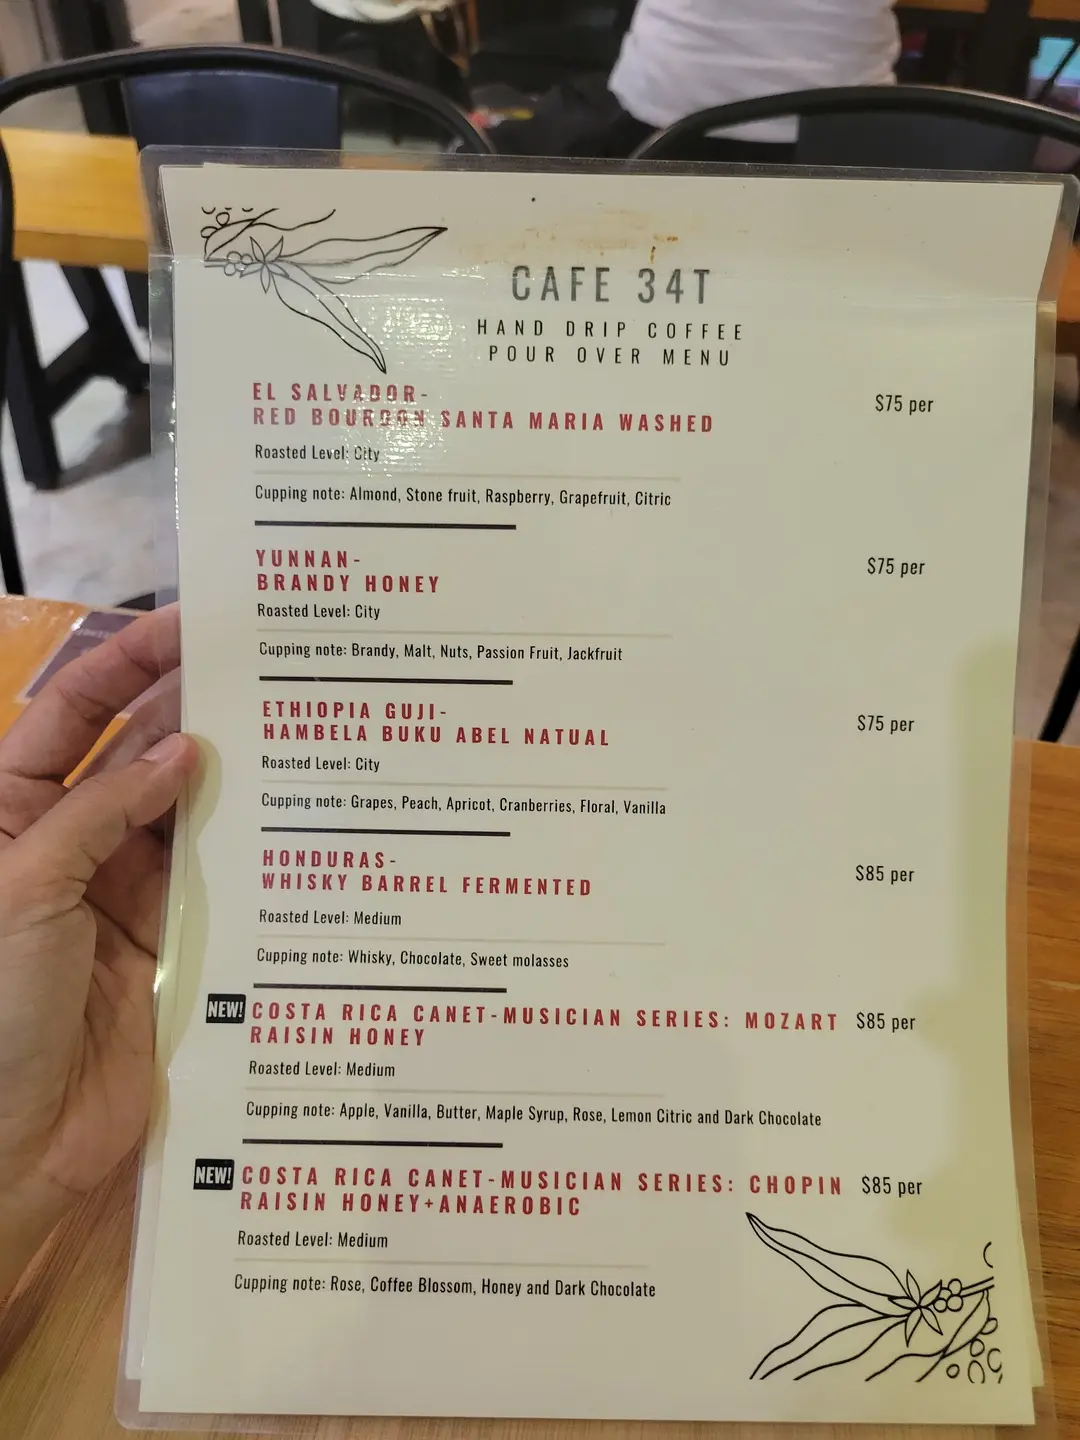 CAFE 34T
HAND DRIP COFFEE
POUR OVER MENU
EL SALVADOR-
RED BOURBON SANTA MARIA WASHED
$75 per
Roasted Level: City
Cupping note: Almond, Stone fruit, Raspberry, Grapefruit, Citric
YUNNAN-
BRANDY HONEY
$75 per
Roasted Level: City
Cupping note: Brandy, Malt, Nuts, Passion Fruit, Jackfruit
ETHIOPIA GUJI-
HAMBELA BUKU ABEL NATUAL
$75 per
Roasted Level: City
Cupping note: Grapes, Peach, Apricot, Cranberries, Floral, Vanilla
HONDURAS-
WHISKY BARREL FERMENTED
$85 per
Roasted Level: Medium
Cupping note: Whisky, Chocolate, Sweet molasses
NEW! COSTA RICA CANET-MUSICIAN SERIES: MOZART $85 per
RAISIN HONEY
Roasted Level: Medium
Cupping note: Apple, Vanilla, Butter, Maple Syrup, Rose, Lemon Citric and Dark Chocolate
NEW! COSTA RICA CANET-MUSICIAN SERIES: CHOPIN $85 per
RAISIN HONEY+ANAEROBIC
Roasted Level: Medium
Cupping note: Rose, Coffee Blossom, Honey and Dark Chocolate